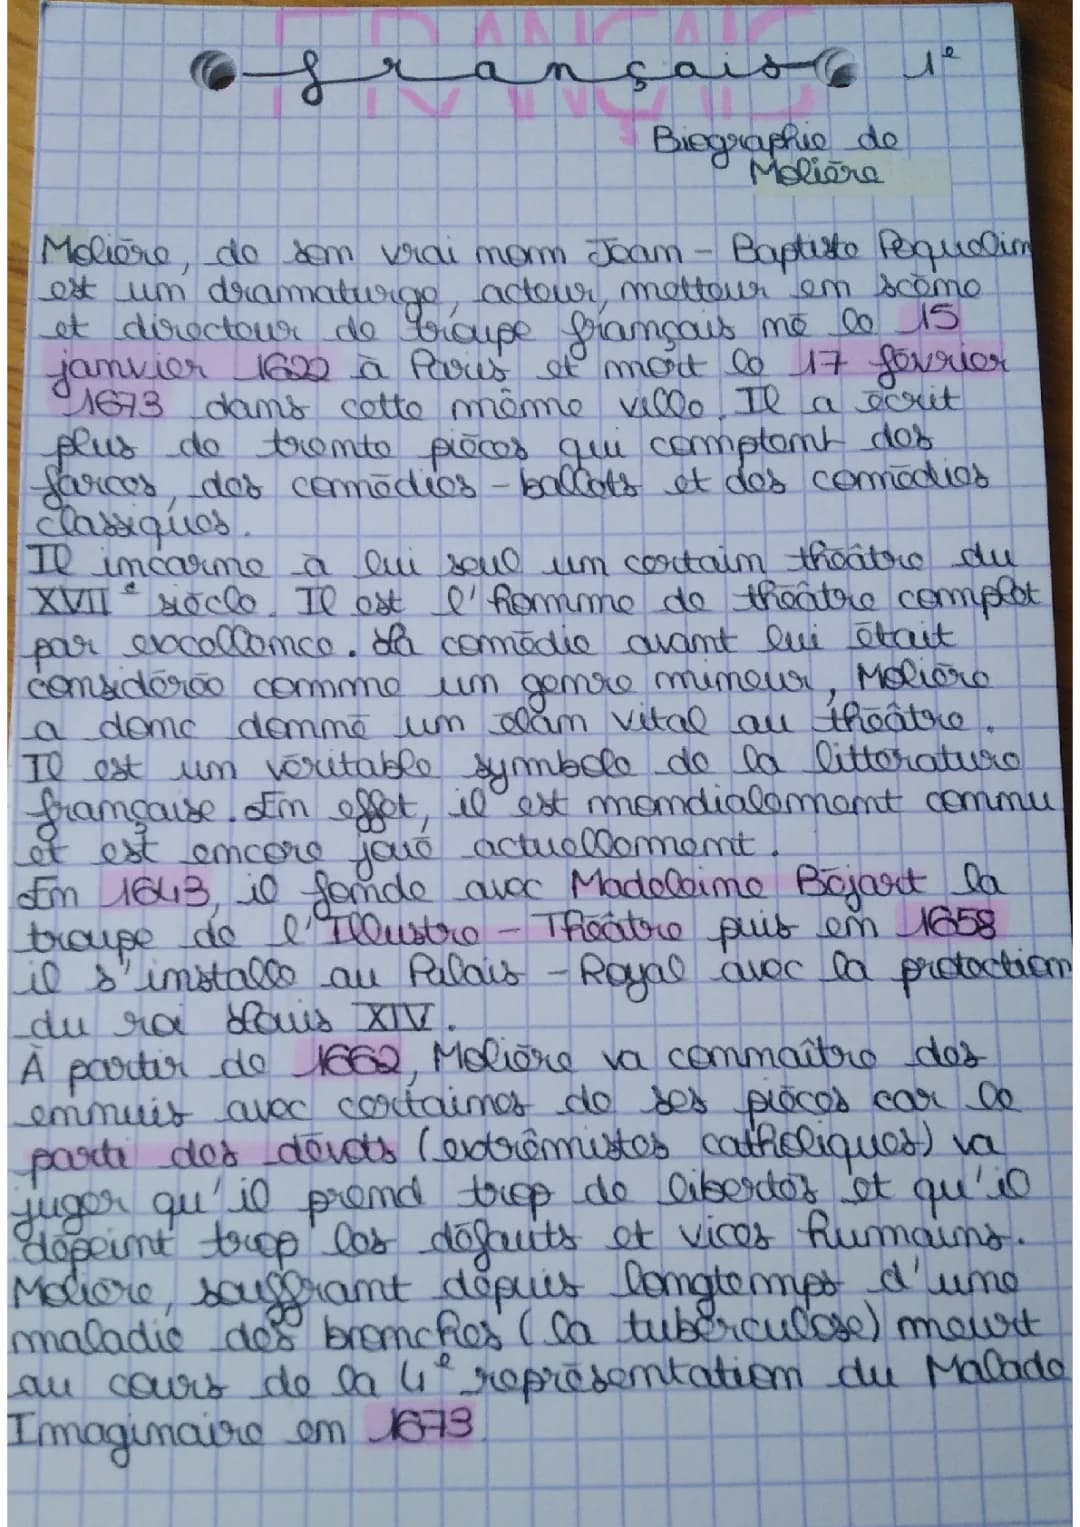 FRANÇAIS
français 1e
Biographie de
Molière
Molière, de son vrai nom Jean-Baptiste Poquelin
est un dramaturge, acteur, metteur en scène
et directeur de troupe français né le 15
janvier 1622 à Paris et mort le 17 février
1673 dans cette même ville. Il a écrit
plus de trente pièces qui comptent des
farces, des comédies-ballets et des comédies
classiques.
Il incarne à lui seul un certain théâtre du
XVIIe siècle. Il est l'homme de théâtre complet
par excellence. La comédie avant lui était
considérée comme un genre mineur, Molière
a donc donné un élan vital au théâtre.
Il est un véritable symbole de la littérature
française. En effet, il est mondialement connu
et est encore joué actuellement.
En 1643, il fonde avec Madeleine Béjart la
troupe de l'Illustre-Théâtre puis en 1658
il s'installe au Palais-Royal avec la protection
du roi Louis XIV.
À partir de 1662, Molière va connaître des
ennuis avec certaines de ses pièces car le
parti des dévots (extrêmistes catholiques) va
juger qu'il prend trop de libertés et qu'il
dépeint trop les défauts et vices humains.
Molière, souffrant depuis longtemps d'une
maladie des bronches (la tuberculose) meurt
au cours de la 4e représentation du Malade
Imaginaire en 1673.